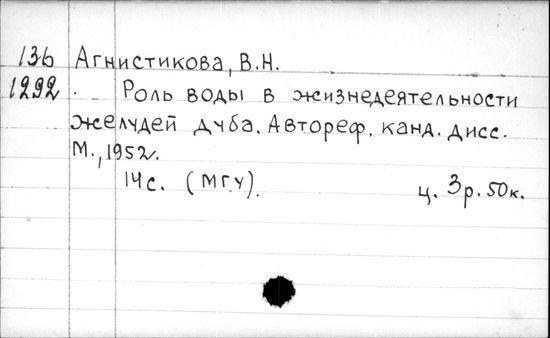 136 Агнистикова, В.Н.
1292. Роль воды в жизнедеятельности
желудей дуба. Автореф. канд. дисс.
М., 1952.
14с. (МГУ). ц. 3р. 50к.